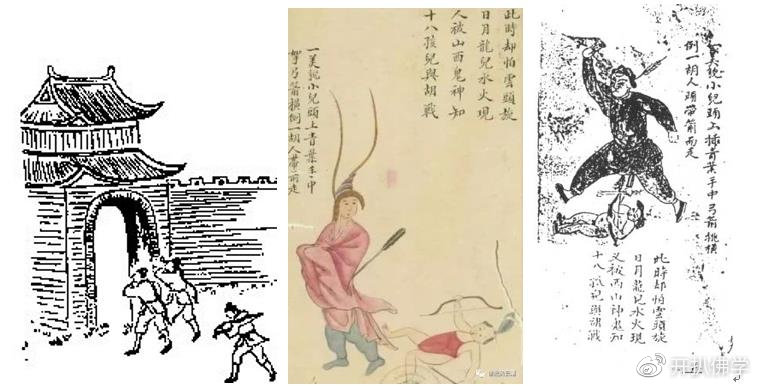 此時却怕雲頭旋
日月龍兒水火現
人被山西鬼神知
十八孩兒與胡戰
一美貌小兒頭上青葉手中
弓箭橫倒一胡人帶箭走
美貌小兒頭上插青葉手中弓箭挑橫
倒一胡人頭帶箭而走
此時却怕雲頭旋
日月龍兒水火現
又被西山神鬼知
十八孩兒與戰
开扒佛学